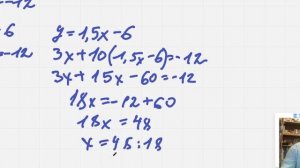 =-12
6
=-12
y=1,5x-6
3x+10(1,5x-6)=-12
3x+15x-60=-12
18x=-12+60
18x=48
x=48:18